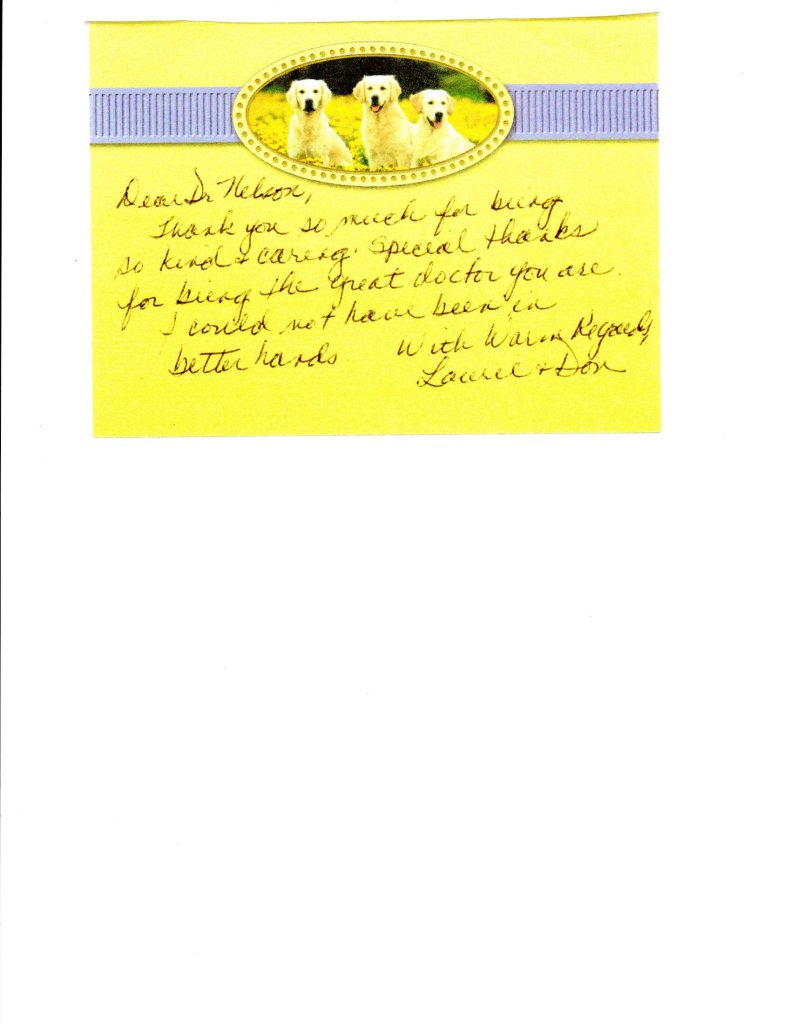 Dear Dr Nelson,
Thank you so much for being
so kind & caring. Special thanks
for being the great doctor you are.
I could not have been in
better hands
With Warm Regards
Laurel & Don